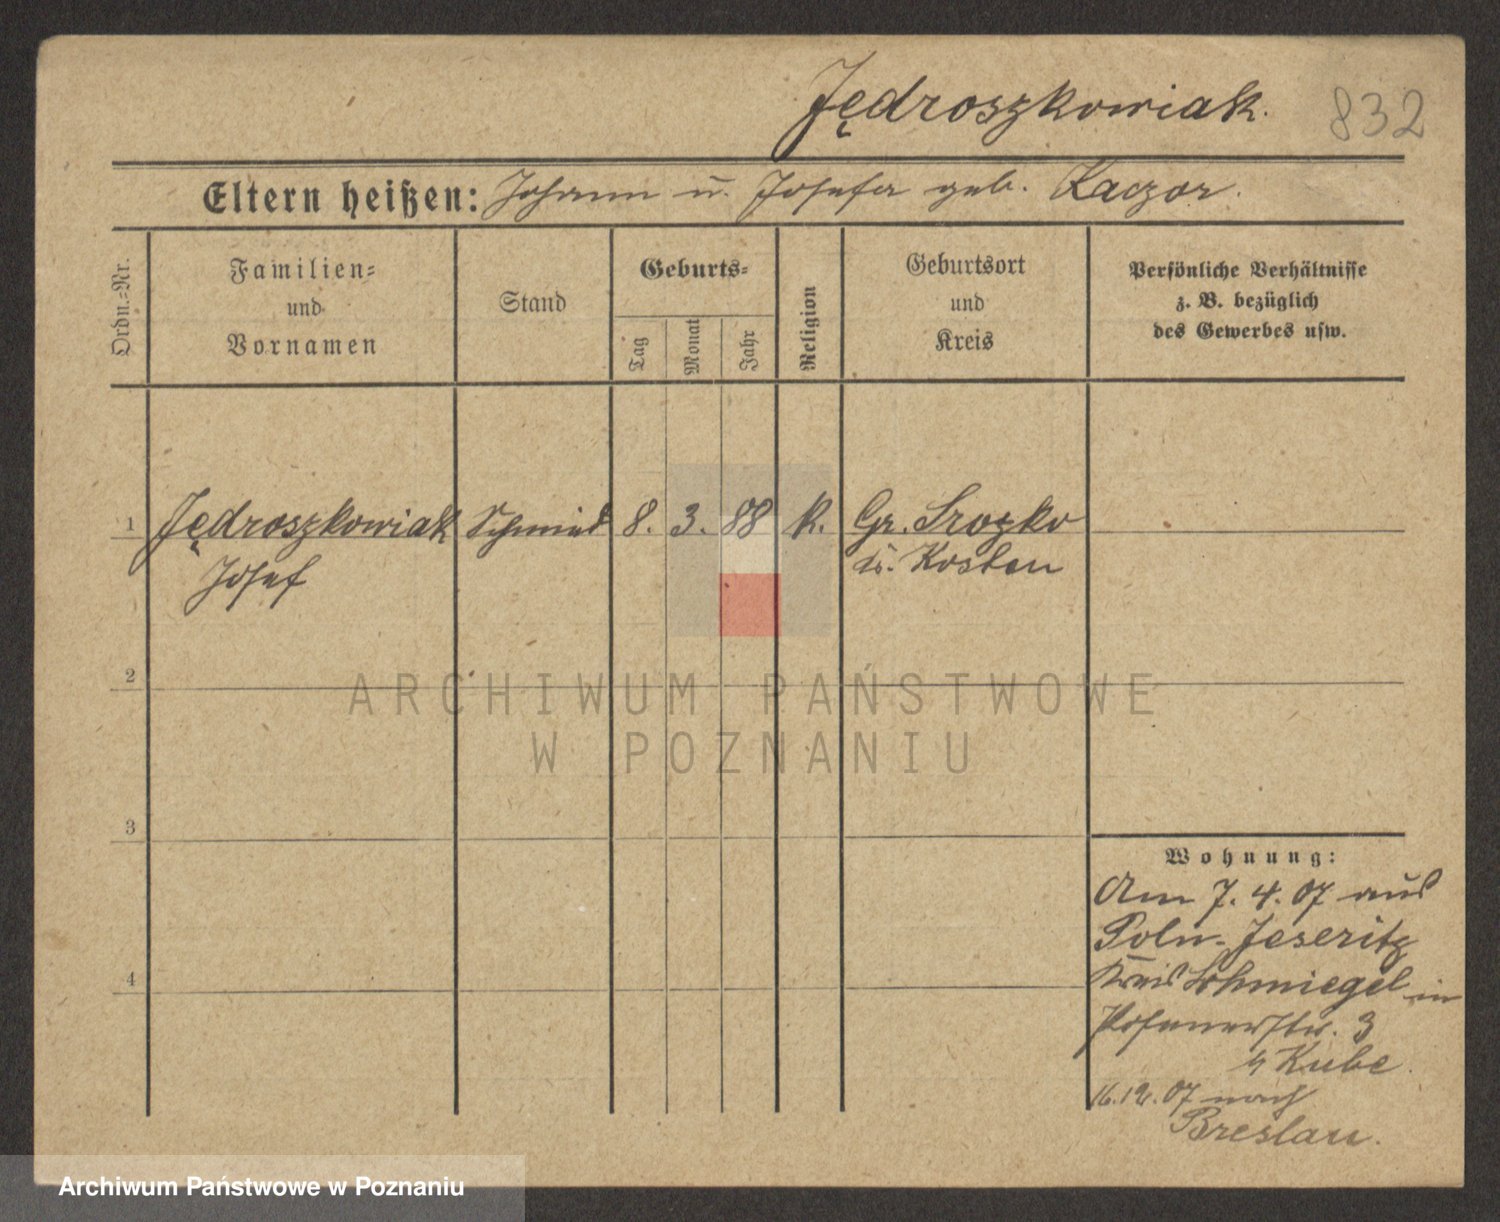 Jędroszkowiak.
832
Eltern heißen: Johann u. Josefa geb. Kaczor.
Ordn.-Nr.
Familien-
und
Vornamen
Stand
Geburts-
Tag
Monat
Jahr
Religion
Geburtsort
und
Kreis
Persönliche Verhältnisse
z. B. bezüglich
des Gewerbes usw.
1 Jędroszkowiak Schmied 8. 3. 88 k. Gr. Srozko
Josef Kosten
2
ARCHIWUM PAŃSTWOWE
W POZNANIU
3
Wohnung:
Am 7. 4. 07 aus
Poln. Jeseritz
4
Kreis Schmiegel in
Posenerstr. 3
b Kube.
16.12.07 nach
Breslau.
Archiwum Państwowe w Poznaniu